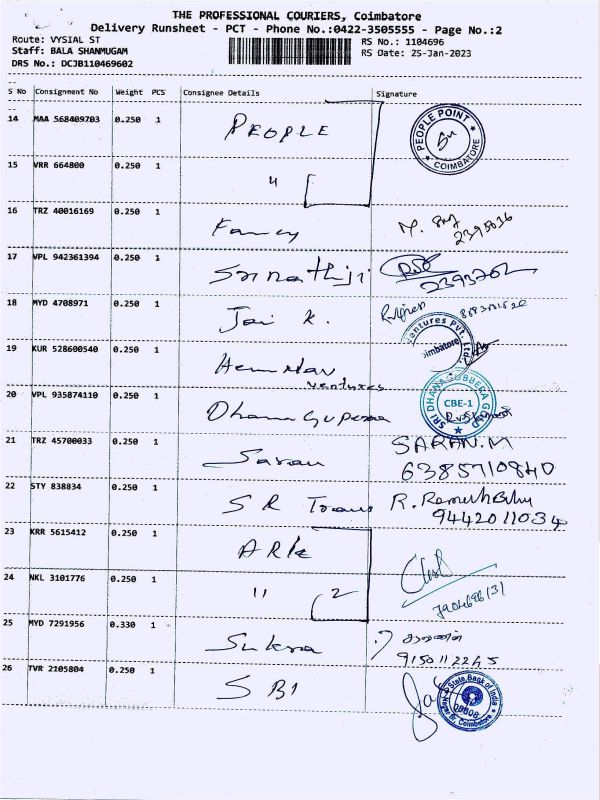 THE PROFESSIONAL COURIERS, Coimbatore
Delivery Runsheet - PCT - Phone No.:0422-3505555 - Page No.:2
Route: VYSIAL ST
RS No.: 1104696
Staff: BALA SHANMUGAM
RS Date: 25-Jan-2023
DRS No.: DCJB110469602
S No Consignment No Weight PCS Consignee Details Signature
14 MAA 568409703 0.250 1 PEOPLE PEOPLE POINT COIMBATORE
15 VRR 664800 0.250 1 "
16 TRZ 40016169 0.250 1 Fancy M.
17 VPL 942361394 0.250 1 Srinathiji 2393702
18 MYD 4708971 0.250 1 Jai K.
19 KUR 528600540 0.250 1 ventures
ventures Pvt. Ltd
20 VPL 935874110 0.250 1 SRI DHANAGUBBERA GOLD CBE-1
21 TRZ 45700033 0.250 1 Saran SARAN.M
6385710840
22 STY 838834 0.250 1 S R Trans R.
9442011034
23 KRR 5615412 0.250 1 ARK
24 NKL 3101776 0.250 1 " 2
25 MYD 7291956 0.330 1 Sukra சரவணன்
9150112245
26 TVR 2105804 0.250 1 SBI State Bank of India Coimbatore